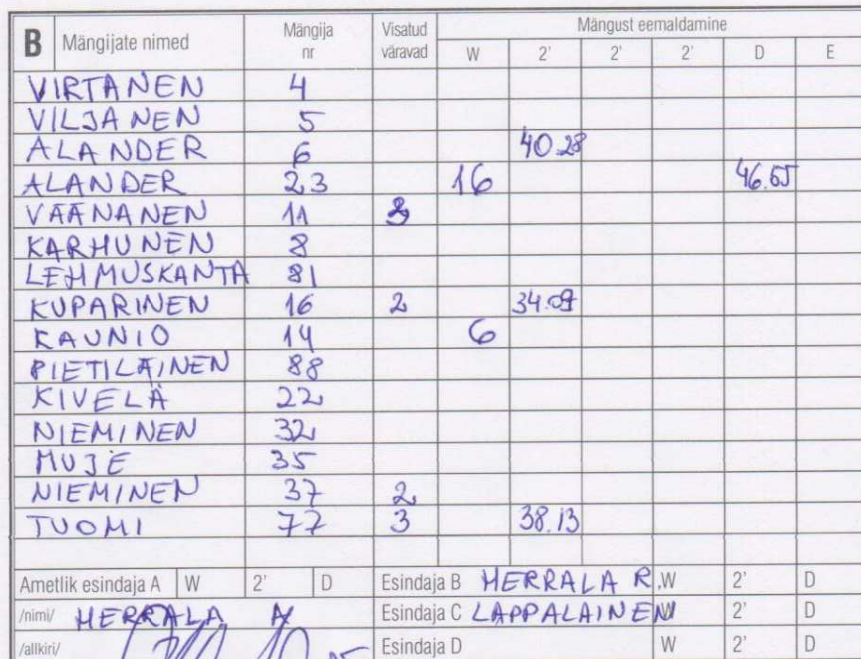 B Mängijate nimed Mängija nr Visatud väravad Mängust eemaldamine
W 2' 2' 2' D E
VIRTANEN 4
VILJANEN 5
ALANDER 6 40.28
ALANDER 23 16 46.55
VÄÄNÄNEN 11
KARHUNEN 8
LEHMUSKANTA 81
KUPARINEN 16 2 34.09
KAUNIO 14 6
PIETILÄINEN 88
KIVELÄ 22
NIEMINEN 32
MUJE 35
NIEMINEN 37 2
TUOMI 77 3 38.13
Ametlik esindaja A W 2' D Esindaja B HERRALA R. W 2' D
/nimi/ HERRALA A Esindaja C LAPPALAINEN W 2' D
/allkiri/ Esindaja D W 2' D